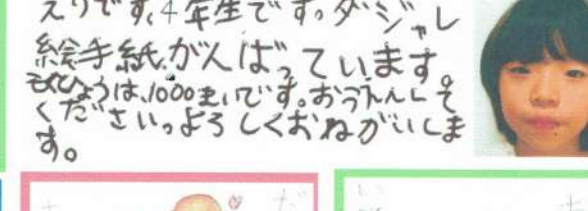 えりです。4年生です。ダジャレ
絵手紙がんばっています。
もくひょうは、1000まいです。おうえんして
ください。よろしくおねがいしま
す。